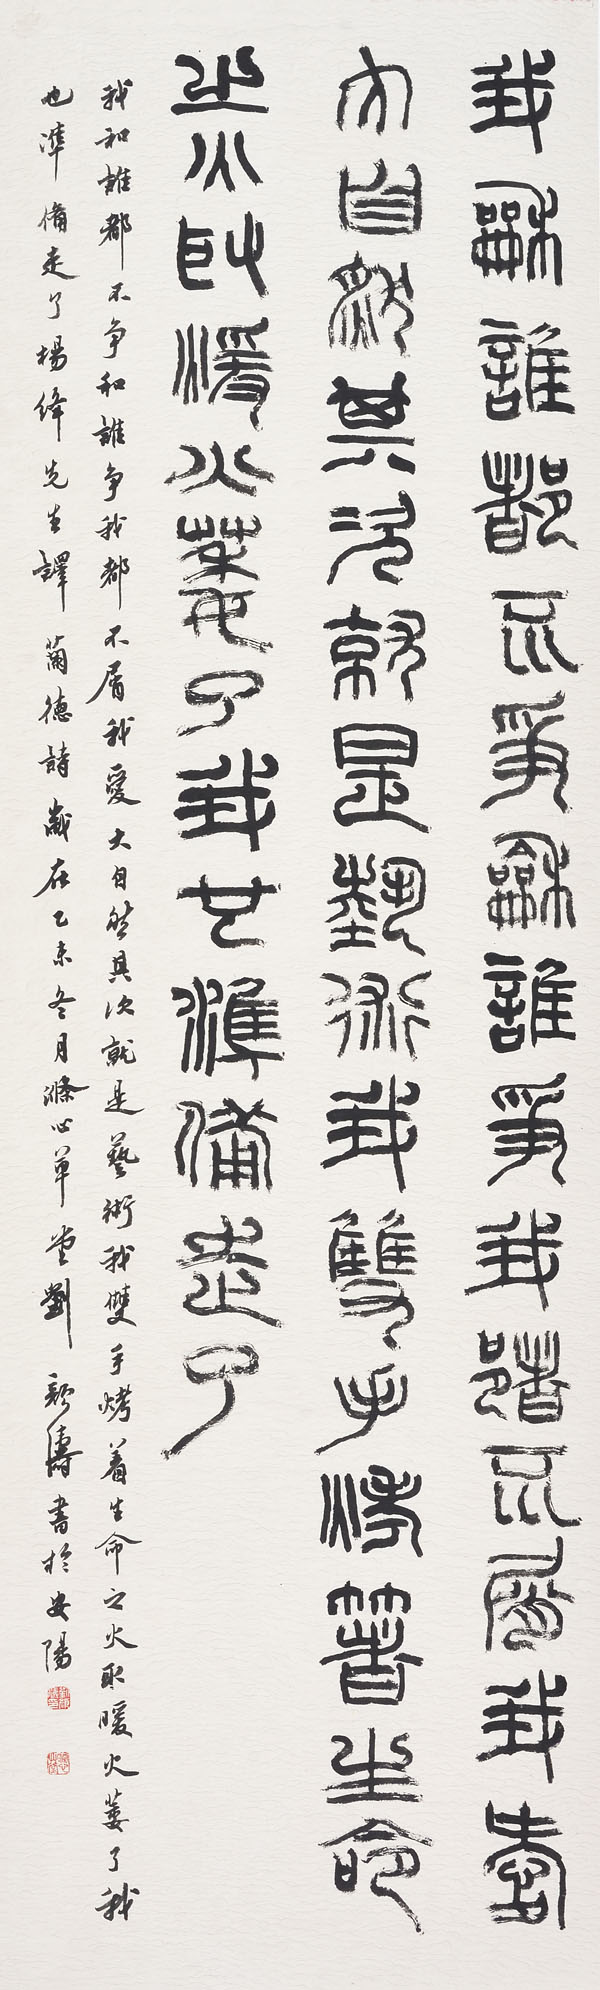 我龢誰都不爭龢誰爭我都不屑我愛
大自然其次就是藝術我雙手烤著生命
之火取暖火萎了我也準備走了
我和誰都不爭和誰爭我都不屑我愛大自然其次就是藝術我雙手烤着生命之火取暖火萎了我
也準備走了楊絳先生譯蘭德詩歲在乙未冬月滌心草堂劉濤書於安陽